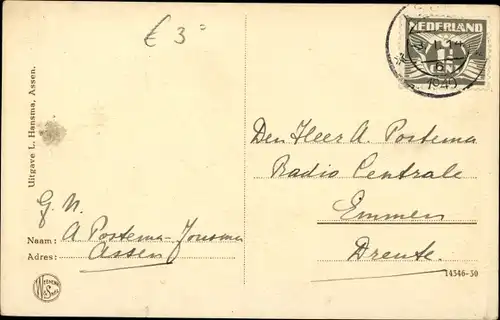 € 3=
NEDERLAND
1½
CENT
1940
Uitgave L. Hansma, Assen.
Den Heer A. Postema
Radio Centrale
Emmen
Drente.
G. N.
Naam: A Postema-Jonsma
Adres: Assen
14546-30